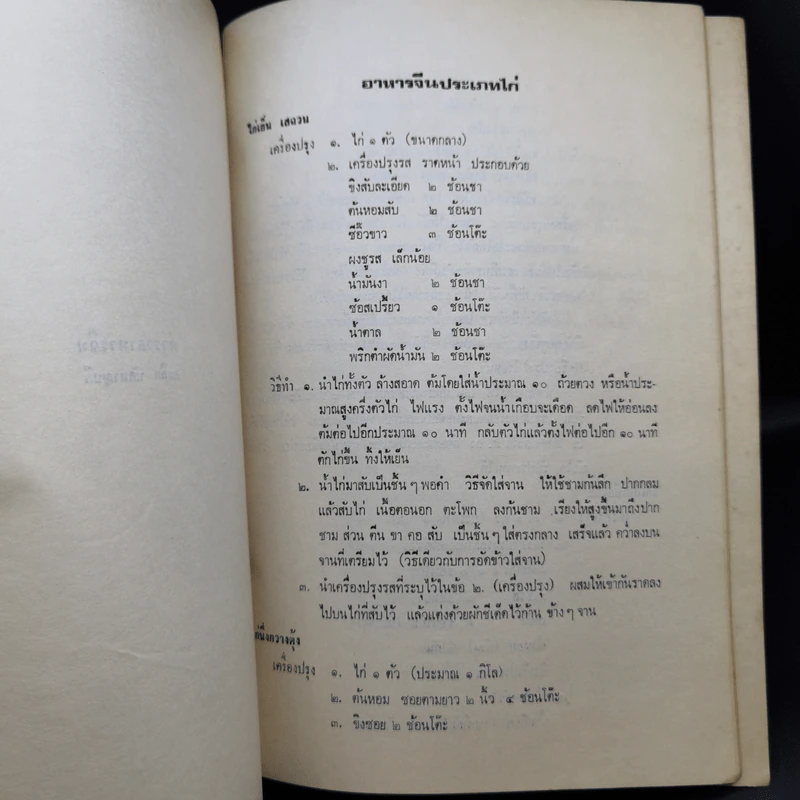 อาหารจีนประเภทไก่
ไก่เย็น เสฉวน
เครื่องปรุง ๑. ไก่ ๑ ตัว (ขนาดกลาง)
๒. เครื่องปรุงรส ราดหน้า ประกอบด้วย
ขิงสับละเอียด ๒ ช้อนชา
ต้นหอมสับ ๒ ช้อนชา
ซีอิ๊วขาว ๓ ช้อนโต๊ะ
ผงชูรส เล็กน้อย
น้ำมันงา ๒ ช้อนชา
ซ้อสเปรี้ยว ๑ ช้อนโต๊ะ
น้ำตาล ๒ ช้อนชา
พริกตำผัดน้ำมัน ๒ ช้อนโต๊ะ
วิธีทำ ๑. นำไก่ทั้งตัว ล้างสอาด ต้มโดยใส่น้ำประมาณ ๑๐ ถ้วยตวง หรือน้ำประ-
มาณสูงครึ่งตัวไก่ ไฟแรง ตั้งไฟจนน้ำเกือบจะเดือด ลดไฟให้อ่อนลง
ต้มต่อไปอีกประมาณ ๑๐ นาที กลับตัวไก่แล้วตั้งไฟต่อไปอีก ๑๐ นาที
ตักไก่ขึ้น ทิ้งให้เย็น
๒. นำไก่มาสับเป็นชิ้น ๆ พอคำ วิธีจัดใส่จาน ให้ใช้ชามก้นลึก ปากกลม
แล้วสับไก่ เนื้อตอนอก ตะโพก ลงก้นชาม เรียงให้สูงขึ้นมาถึงปาก
ชาม ส่วน ตีน ขา คอ สับ เป็นชิ้น ๆ ใส่ตรงกลาง เสร็จแล้ว คว่ำลงบน
จานที่เตรียมไว้ (วิธีเดียวกับการอัดข้าวใส่จาน)
๓. นำเครื่องปรุงรสที่ระบุไว้ในข้อ ๒. (เครื่องปรุง) ผสมให้เข้ากันราดลง
ไปบนไก่ที่สับไว้ แล้วแต่งด้วยผักชีเด็ดไว้ก้าน ข้าง ๆ จาน
ก่นึ่งกวางตุ้ง
เครื่องปรุง ๑. ไก่ ๑ ตัว (ประมาณ ๑ กิโล)
๒. ต้นหอม ซอยตามยาว ๒ นิ้ว ๔ ช้อนโต๊ะ
๓. ขิงซอย ๒ ช้อนโต๊ะ